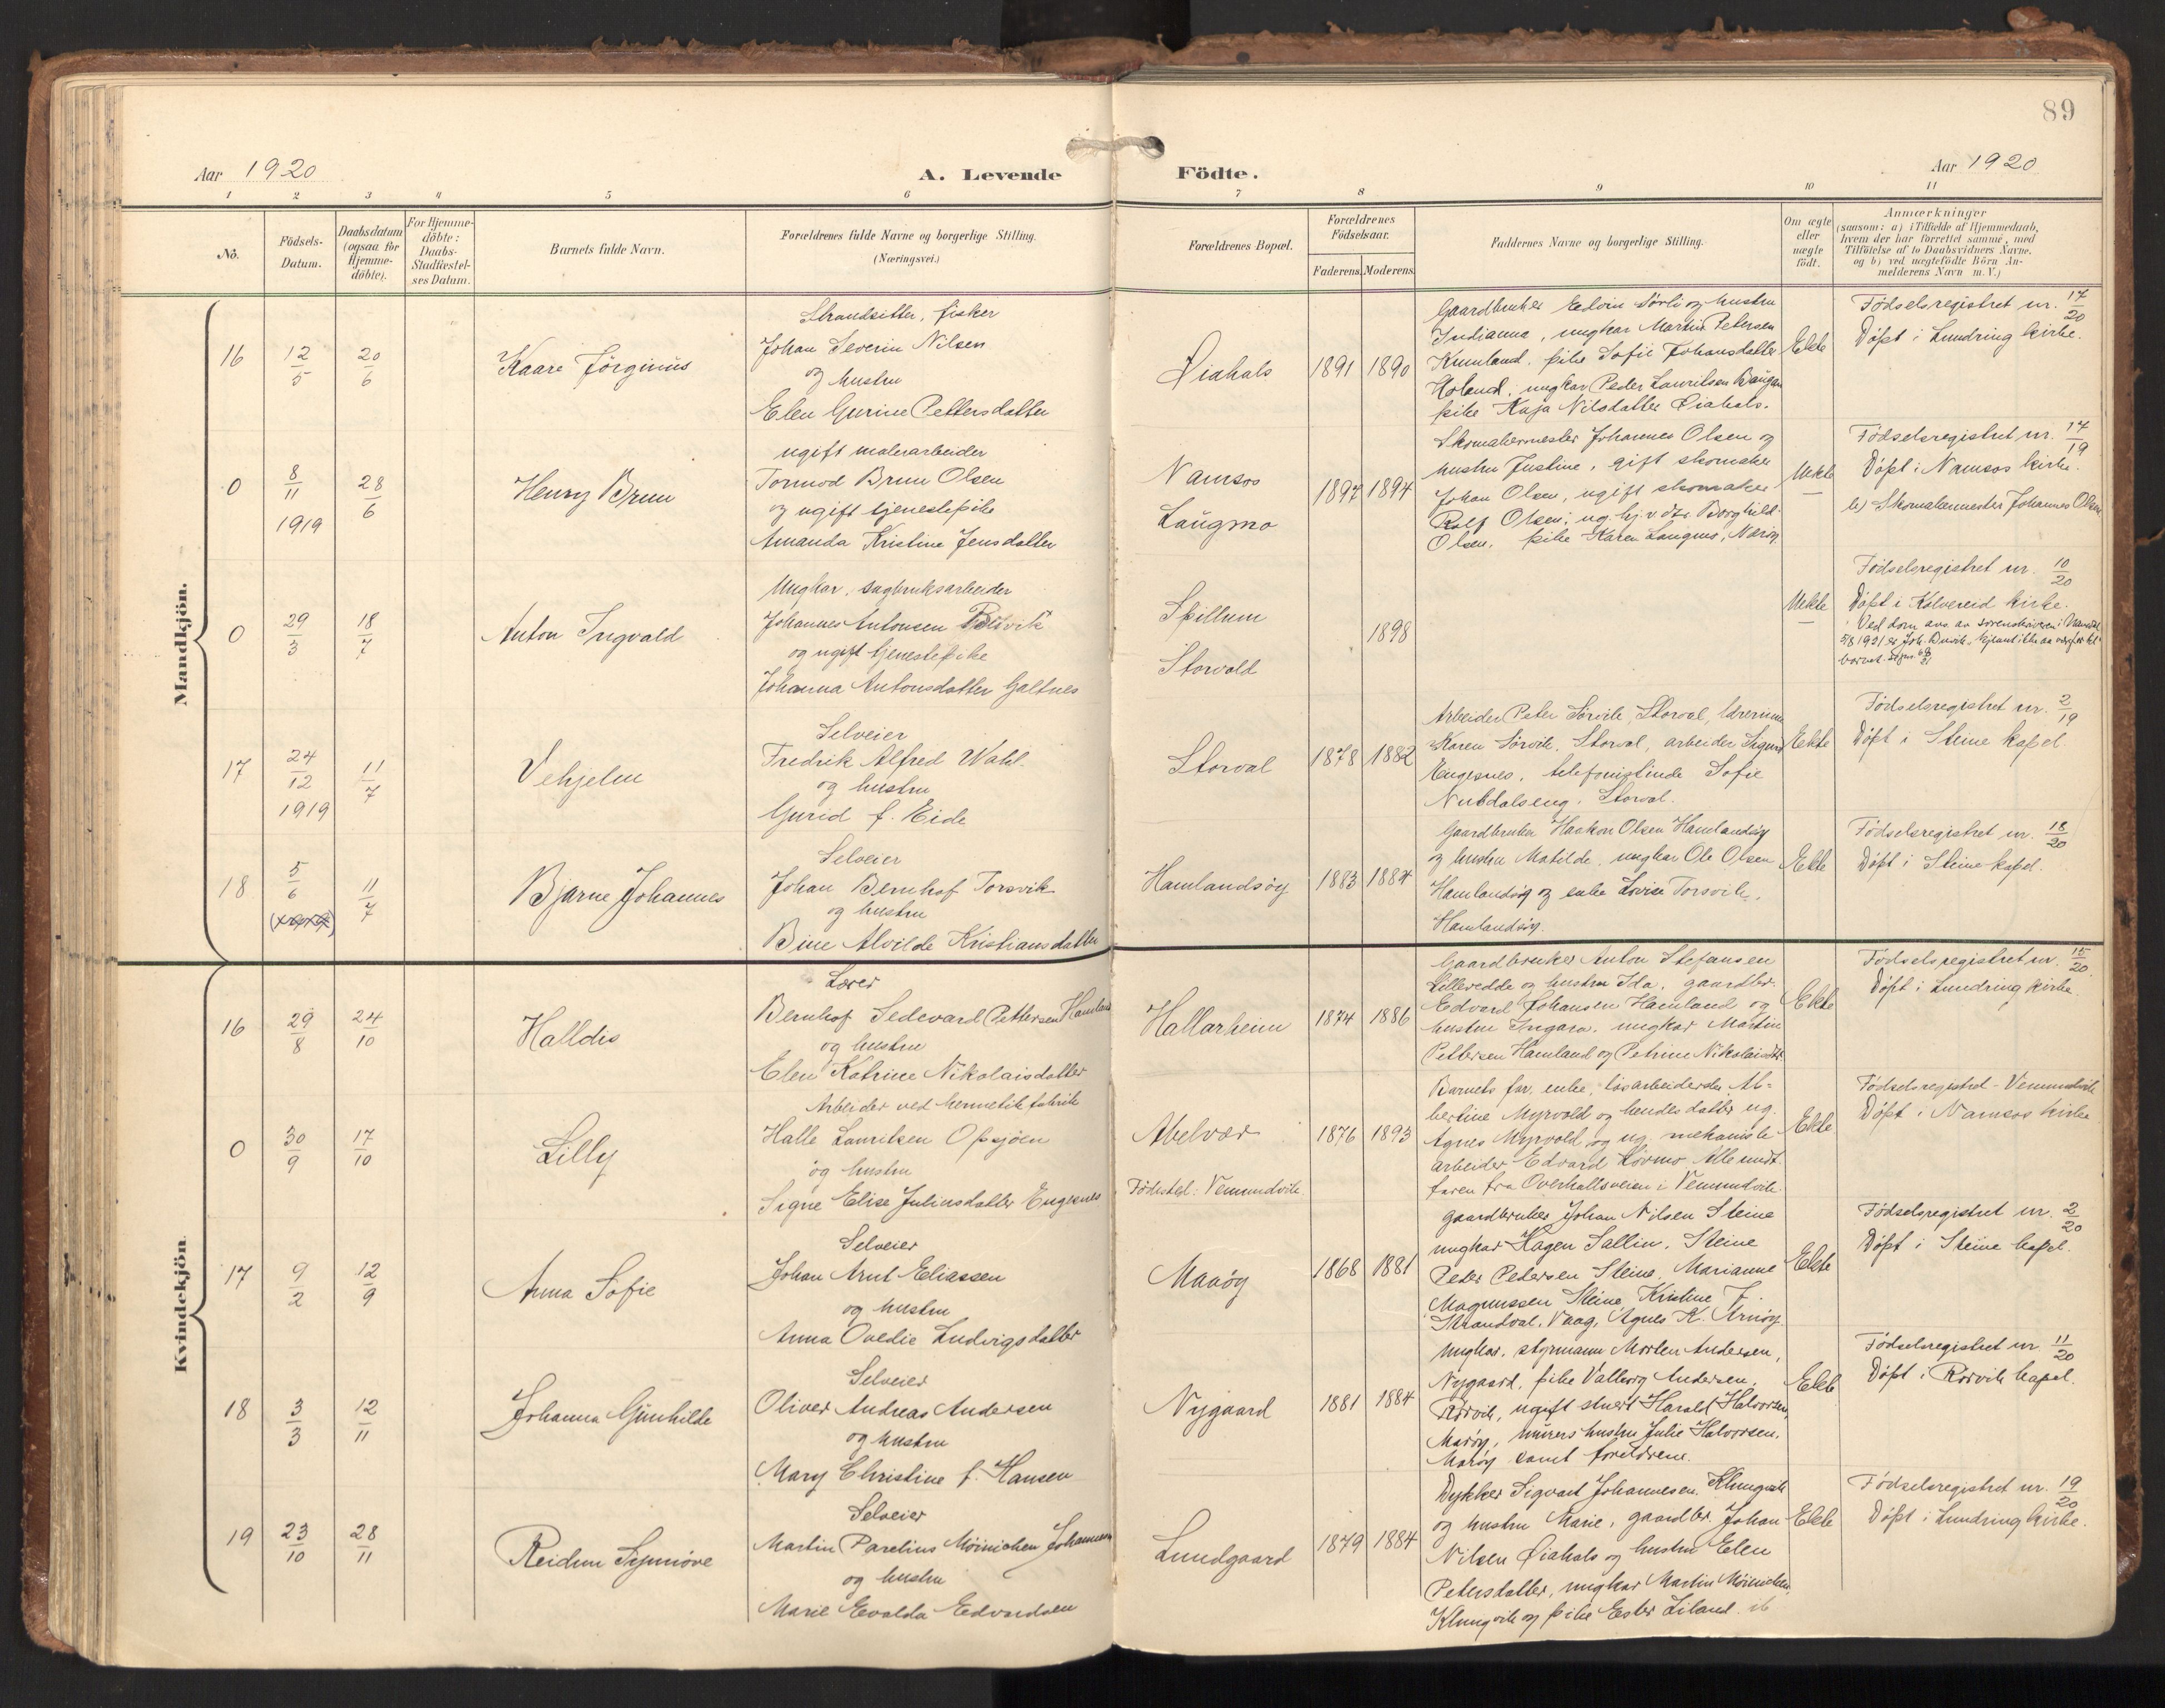 89
Aar 1920
A. Levende Födte.
Aar 1920
1 2 3 4 5 6 7 8 9 10 11
No.
Födsels-Datum.
Daabsdatum (ogsaa for Hjemme-döbte).
For Hjemme-döbte: Daabs-Stadfæstelses Datum.
Barnets fulde Navn.
Forældrenes fulde Navne og borgerlige Stilling.
(Næringsvei.)
Forældrenes Bopæl.
Forældrenes Födselsaar.
Faderens. Moderens.
Faddernes Navne og borgerlige Stilling.
Om ægte eller uægte födt.
Anmærkninger
(saasom: a) i Tilfælde af Hjemmedaab,
hvem der har forrettet samme, med
Tilföielse af to Daabsvidners Navne,
og b) ved uægtefödte Börn An-
melderens Navn m. V.)
Mandkjön.
16
12/5
20/6
Kaare Jörginus
Strandsitter, fisker
Johan Severin Nilsen
og hustru
Elen Gurine Pettersdatter
Øiahals
1891 1890
Gaardbruker Edvin Sörli og hustru
Indianna, ungkar Martin Petersen
Kumland, pike Sofie Johansdatter
Holand, ungkar Peder Lauritsen Baugan
pike Kaja Nilsdatter Øiahals.
Ekte
Födselsregistret nr. 17/20
Döpt i Lundring kirke.
0
8/11
1919
28/6
Henry Brun
ugift malerarbeider
Tormod Brun Olsen
og ugift tjenestepike
Amanda Kristine Jensdatter
Namsos
Laugmo
1897 1894
Skomakermester Johannes Olsen og
hustru Justine, gift skomaker
Johan Olsen, ugift skomaker
Rolf Olsen, ug. hj.v. dtr. Borghild
Olsen, pike Karen Laugmo, Næröy
Uekte
Födselsregistret nr. 17/19
Döpt i Namsos kirke.
b) Skomakermester Johannes Olsen
0
29/3
18/7
Anton Ingvald
Ungkar, sagbruksarbeider
Johannes Antonsen
og ugift tjenestepike
Johanna Antonsdatter Galtnes
Spillum
Storvold
1898
Uekte
Födselsregistret nr. 10/20
Döpt i Kolvereid kirke.
Ved dom avs. av sorenskriveren i Namdal
5/8 1921 er Joh.
barnet.
17
24/12
1919
11/7
Vehjelm
Selveier
Fredrik Alfred Wahl.
og hustru
Gurid f. Eide
Storval
1878 1882
Arbeider Peter Sörvik, Storval,
Karen Sörvik, Storval, arbeider Sigurd
Engesnes, telefonistinde Sofie
Nubdalseng, Storval.
Ekte
Födselsregistret nr. 2/19
Döpt i Steine kapel.
18
5/6
11/7
Bjarne Johannes
Selveier
Johan Bernhof Torsvik
og hustru
Bine Alvilde Kristiansdatter
Hamlandsöy
1883 1884
Gaardbruker Haakon Olsen Hamlandsöy
og hustru Matilde, ungkar Ole Olsen
Hamlandsöy og enke Lovise Torsvik,
Hamlandsöy.
Ekte
Födselsregistret nr. 18/20
Döpt i Steine kapel.
Kvindekjön.
16
29/8
24/10
Halldis
Lærer
Bernhof Sedevard Pettersen Hamland
og hustru
Elen Katrine Nikolaisdatter
Hallarheim
1874 1886
Gaardbruker Anton Stefansen
Lilleredde og hustru Ida, gaardbr.
Edvard Johansen Hamland og
hustru Ingara, ungkar Martin
Pettersen Hamland og Petrine Nikolaisdtr.
Ekte
Födselsregistret nr. 15/20.
Döpt i Lundring kirke
0
30/9
17/10
Lilly
Arbeider ved hermetikfabrik
Halle Lauritsen Opsjöen
og hustru
Signe Elise Juliusdatter Engesnes
Abelvær
Födested: Vemundvik
1876 1893
Barnets far, enke, lösarbeiderske Al-
bertine Myrvold og hendes datter ug.
Agnes Myrvold og ug. mekanisk
arbeider Edvard Lövmo. Alle undt.
faren fra Overhallsveien i Vemundvik
Ekte
Födselsregistret - Vemundvik
Döpt i Namsos kirke
17
9/2
12/9
Anna Sofie
Selveier
Johan Arnt Eliassen
og hustru
Anna Ovedie Ludvigsdatter
Maröy
1868 1881
Gaardbruker Johan Nilsen Steine
ungkar Hagen Sallin, Steine
Peder Pedersen Steine, Marianne
Magnussen Steine, Kristine J.
Strandval, Vaag, Agnes K. Arnöy.
Ekte
Födselsregistret nr. 2/20
Döpt i Steine kapel.
18
3/3
12/11
Johanna Gunhilde
Selveier
Oliver Andreas Andersen
og hustru
Mary Christine f. Hansen
Nygaard
1881 1884
Ungkar, styrmann Morten Andersen,
Nygaard, pike Valborg Andersen,
Rörvik, ugift stuert Harald Halvorsen,
Maröy, murers hustru Julie Halvorsen,
Maröy samt foreldrene.
Ekte
Födselsregistret nr. 11/20
Döpt i Rörvik kapel.
19
23/10
28/11
Reidun Synnöve
Selveier
Martin Parelius Möinichen Johannesen
og hustru
Marie Evalda Edvardsen
Lundgaard
1879 1884
Dykker Sigvart Johannesen Klungvik
og hustru Marie, gaardbr. Johan
Nilsen Øiahals og hustru Elen
Petersdatter, ungkar Martin Möinichen,
Klungvik og pike Ester Liland.
Ekte
Födselsregistret nr. 19/20
Döpt i Lundring kirke.